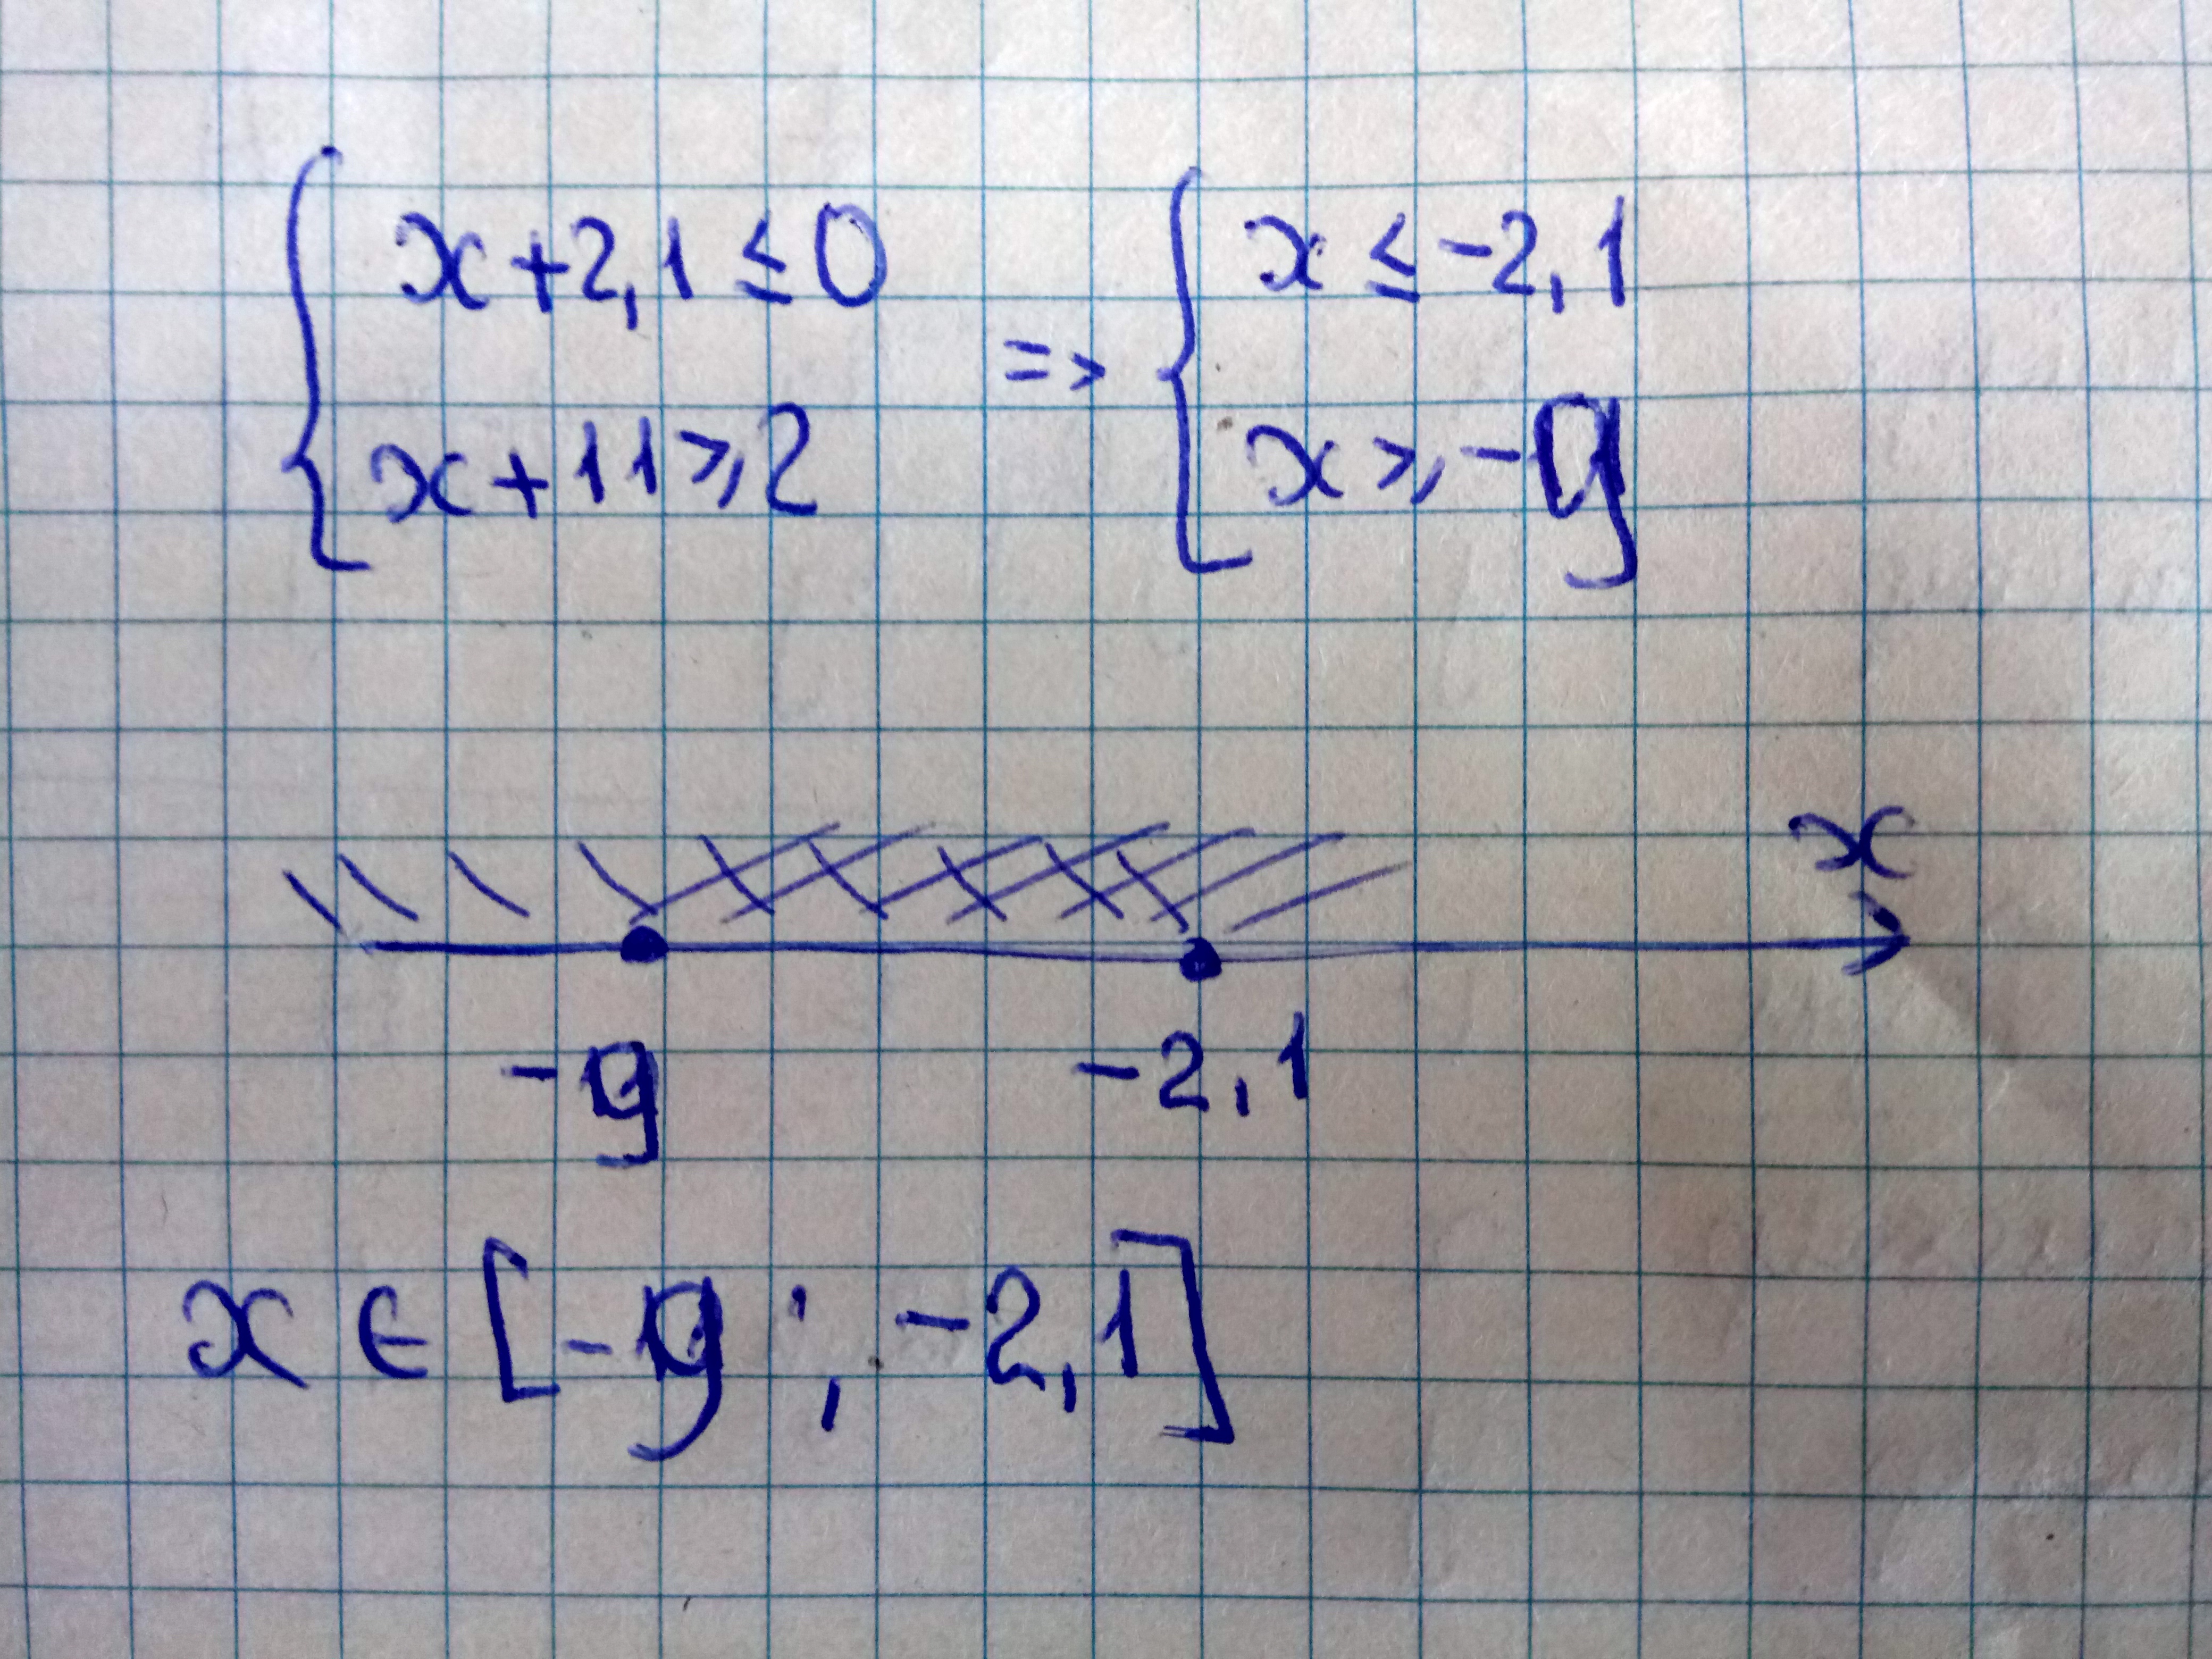 x+2,1≤0 => x≤-2,1
x+11⩾2 x⩾-9
x
-9 -2,1
x∈[-9;-2,1]